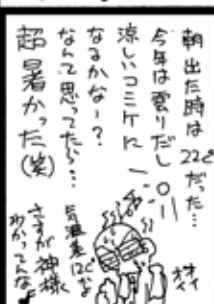 朝出た時は22℃だった…
今年は曇りだし
涼しいコミケに
なるかなー?
なんて思ってたら…
超暑かった(笑)
気温差12℃かな
さすが神様
わかってんな
オイオイ